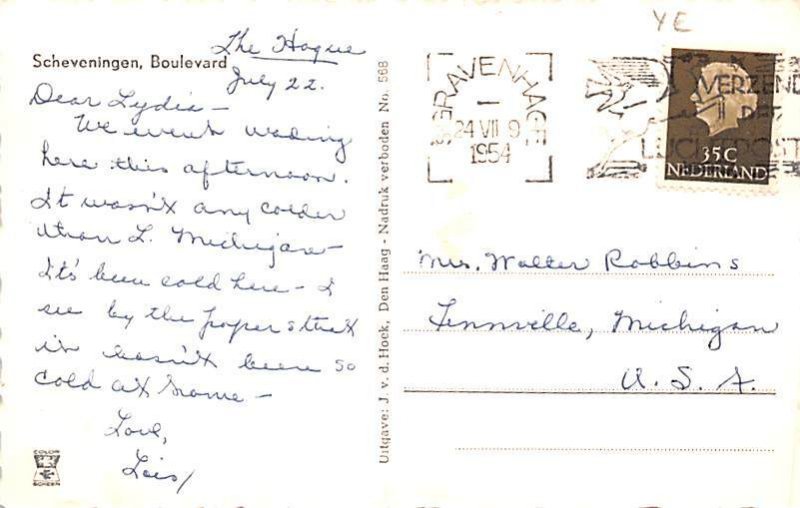 The Hague
Scheveningen, Boulevard
July 22.
Dear Lydia –
We went wading
here this afternoon.
It wasn't any colder
than L. Michigan –
It's been cold here – I
see by the papers that
it hasn't been so
cold at home –
Love,
Lois
COLOR
SCREEN
Uitgave: J. v. d. Hoek, Den Haag - Nadruk verboden No. 568
YE
'S GRAVENHAGE
24 VII 9
1954
VERZEND
PER
LUCHTPOST
35C
NEDERLAND
Mrs. Walter Robbins
Fennville, Michigan
U. S. A.